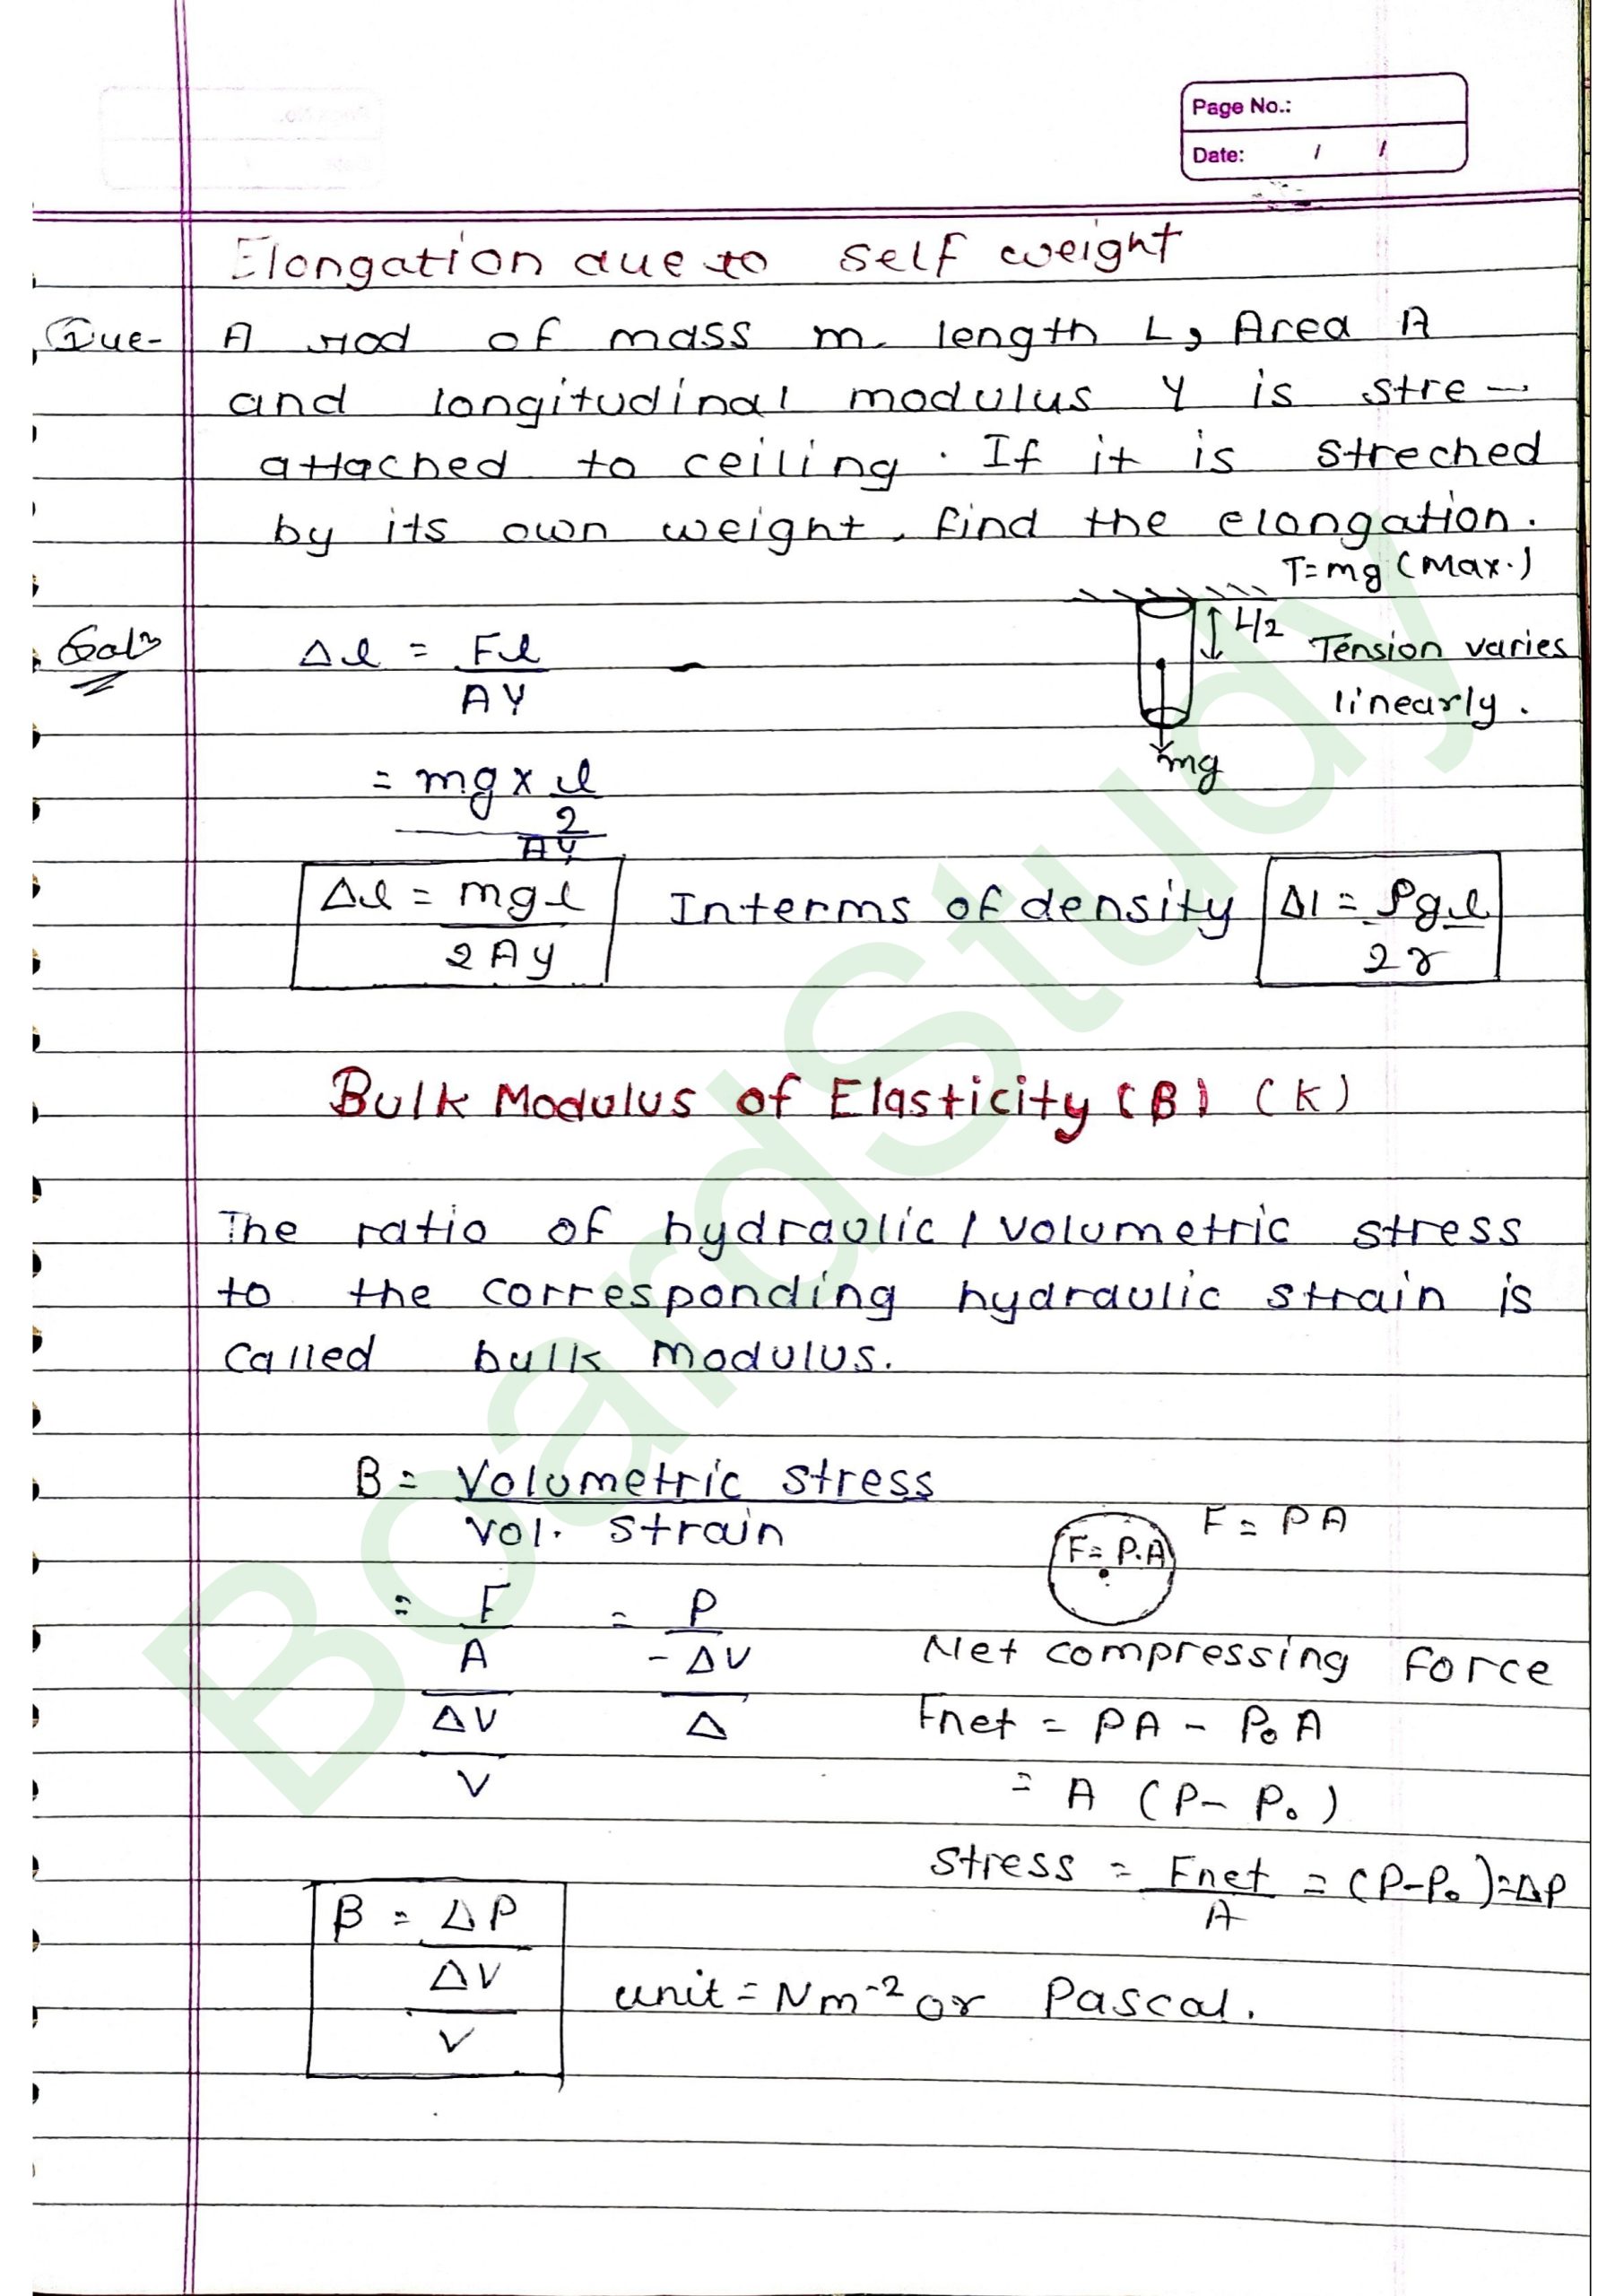 Page No.:
Date: / /
Elongation due to self weight
Que- A rod of mass m length L, Area A
and longitudinal modulus Y is stre-
attached to ceiling. If it is streched
by its own weight, find the elongation.
T=mg (Max.)
L/2
Tension varies
linearly.
mg
Soln
Δl = Fl
AY
= mg x l
2
AY
Δl = mgl
2Ay
Interms of density Δl = ρgl
2γ
Bulk Modulus of Elasticity (B) (K)
The ratio of hydraulic / volumetric stress
to the corresponding hydraulic strain is
called bulk modulus.
B = Volumetric stress
Vol. strain
F = PA
F= P.A
= F = P
A -ΔV
ΔV Δ
V
Net compressing force
Fnet = PA - P₀A
= A (P- P₀)
stress = Fnet = (P-P₀)=ΔP
A
B = ΔP
ΔV
V
unit = Nm-2 or Pascal.
BoardStudy